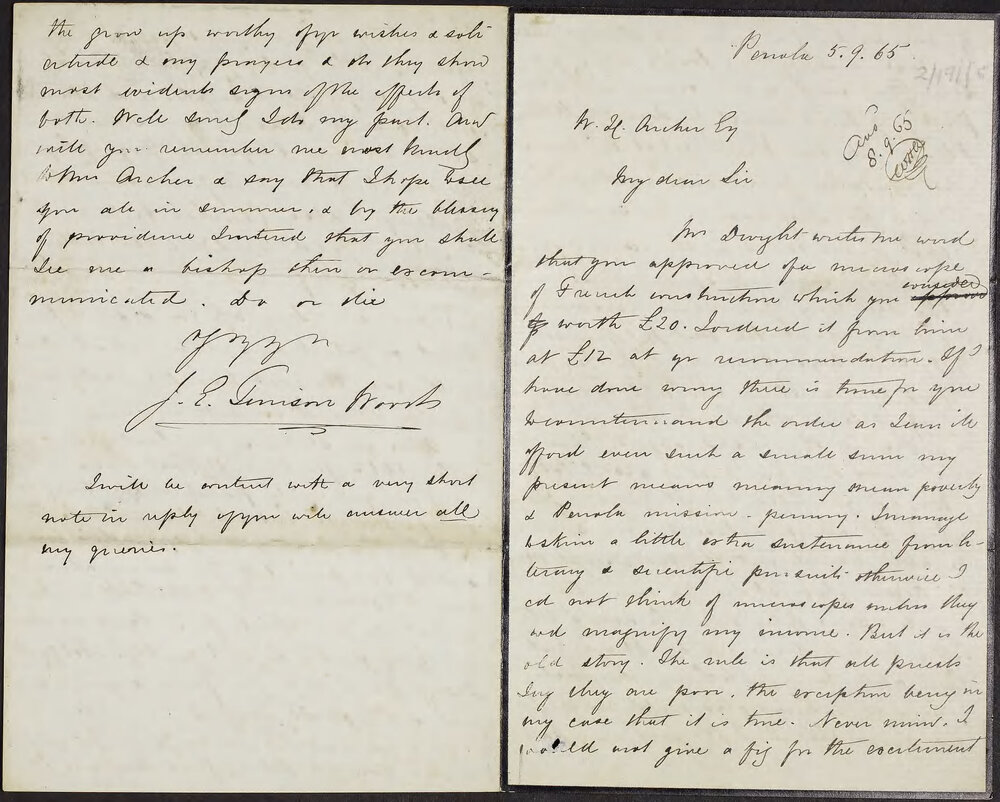 the grow up worthy of yr wishes & soli
citude & my prayers & do they show
most evidents signs of the effects of
both. Well surely I do my part. And
will you remember me most kindly
to Mrs Archer & say that I hope to see
you all in summer. & by the blessing
of providence I intend that you shall
see me a bishop then or excom-
municated. Do or die
J. E. Tenison Woods
I will be content with a very short
note in reply if you will answer all
my queries.
Penola 5.9.65
2/191/5
Ans
8.9.65
W. H. Archer Esq
My dear Sir
Mr Dwight writes me word
that you approved of a microscope
of French construction which you considered
worth £20. I ordered it from him
at £12 at yr recommendation. If I
have done wrong there is time for you
to countermand the order as I can ill
afford even such a small sum my
present means meaning mean poverty
& Penola mission - penury. I manage
to skim a little extra sustenance from li-
terary & scientific pursuits otherwise I
cd not think of microscopes unless they
wd magnify my income. But it is the
old story. The rule is that all priests
say they are poor, the exception being in
my case that it is true. Never mind. I
would not give a fig for the excitement